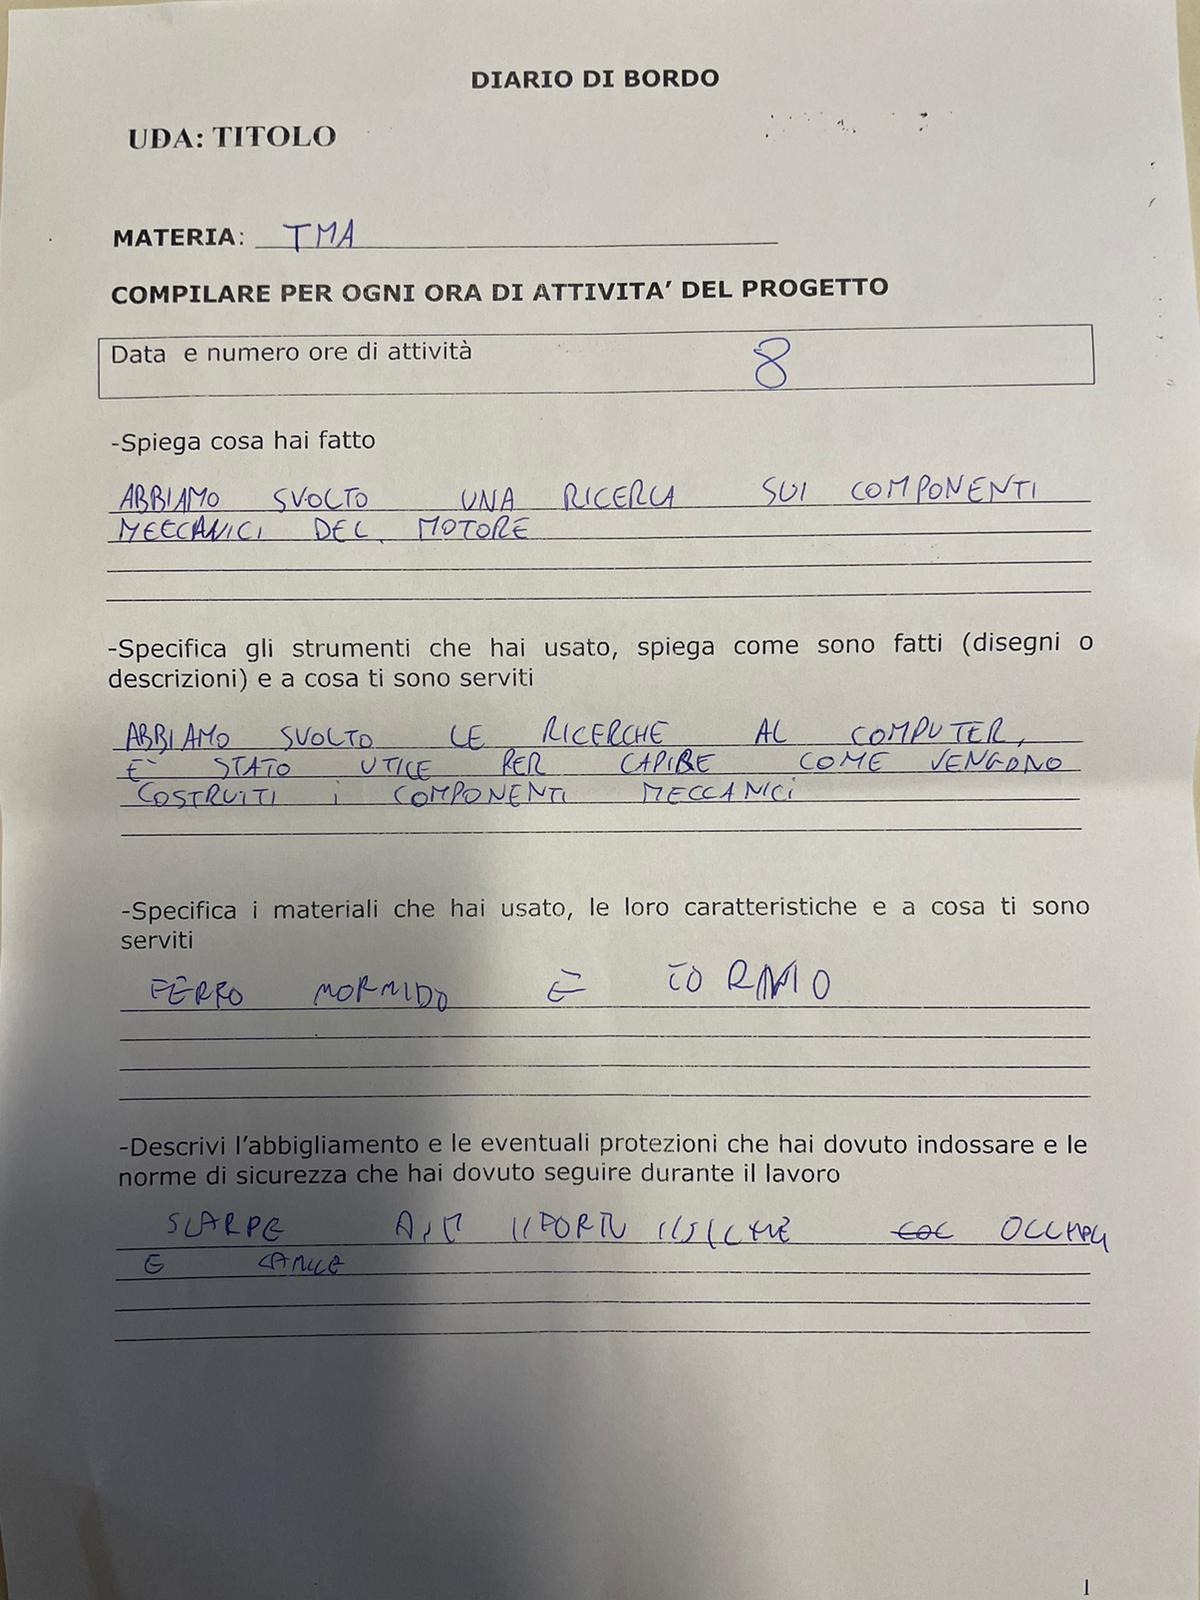 DIARIO DI BORDO
UDA: TITOLO
MATERIA: TMA
COMPILARE PER OGNI ORA DI ATTIVITA' DEL PROGETTO
Data e numero ore di attività 8
-Spiega cosa hai fatto
ABBIAMO SVOLTO UNA RICERCA SUI COMPONENTI
MECCANICI DEL MOTORE
-Specifica gli strumenti che hai usato, spiega come sono fatti (disegni o
descrizioni) e a cosa ti sono serviti
ABBIAMO SVOLTO LE RICERCHE AL COMPUTER,
E' STATO UTILE PER CAPIRE COME VENGONO
COSTRUITI i COMPONENTI MECCANICI
-Specifica i materiali che hai usato, le loro caratteristiche e a cosa ti sono
serviti
FERRO MORMIDO E TORNIO
-Descrivi l'abbigliamento e le eventuali protezioni che hai dovuto indossare e le
norme di sicurezza che hai dovuto seguire durante il lavoro
SCARPE OCCHIALI
E CAMICE
1